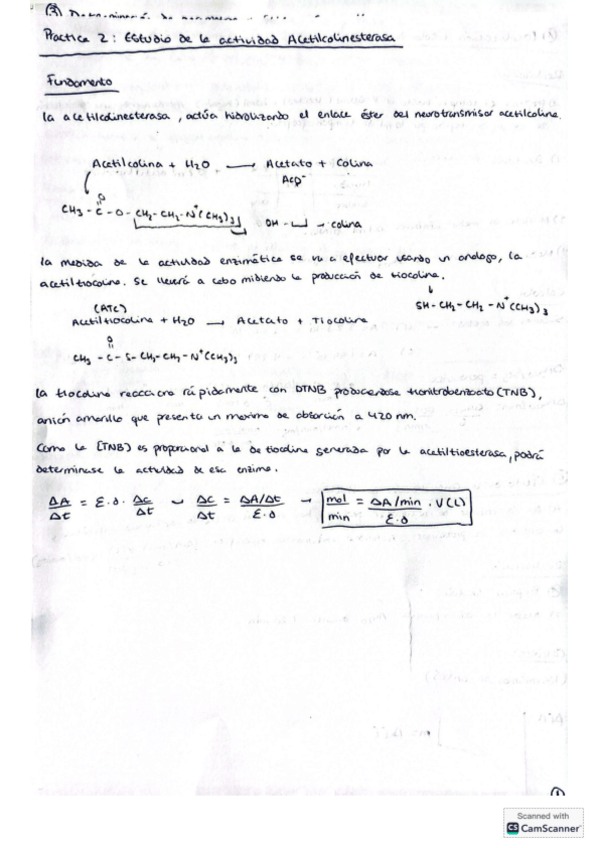 Practica 2: Estudio de la actividad Acetilcolinesterasa
Fundamento
la acetilcolinesterasa, actúa hidrolizando el enlace éster del neurotransmisor acetilcolina.
Acetilcolina + H2O → Acetato + Colina
CH3 - C - O - CH2 - CH2 - N+(CH3)3 OH - - colina
O
la medida de la actividad enzimática se va a efectuar usando un análogo, la
acetiltiocolina. Se llevará a cabo midiendo la producción de tiocolina.
SH - CH2 - CH2 - N+(CH3)3
(ATC)
Acetiltiocolina + H2O → Acetato + Tiocolina
O
CH3 - C - S - CH2 - CH2 - N+(CH3)3
la tiocolina reacciona rápidamente con DTNB produciendose tionitrobenzoato (TNB),
anión amarillo que presenta un maximo de absorción a 420 nm.
Como la [TNB] es proporcional a la de tiocolina generada por la acetiltioesterasa, podrá
determinase la actividad de esa enzima.
ΔA/Δt = ε·δ· Δc/Δt → Δc/Δt = ΔA/Δt / ε·δ → mol/min = ΔA/min / ε·δ · V(L)
1
Scanned with
CS CamScanner